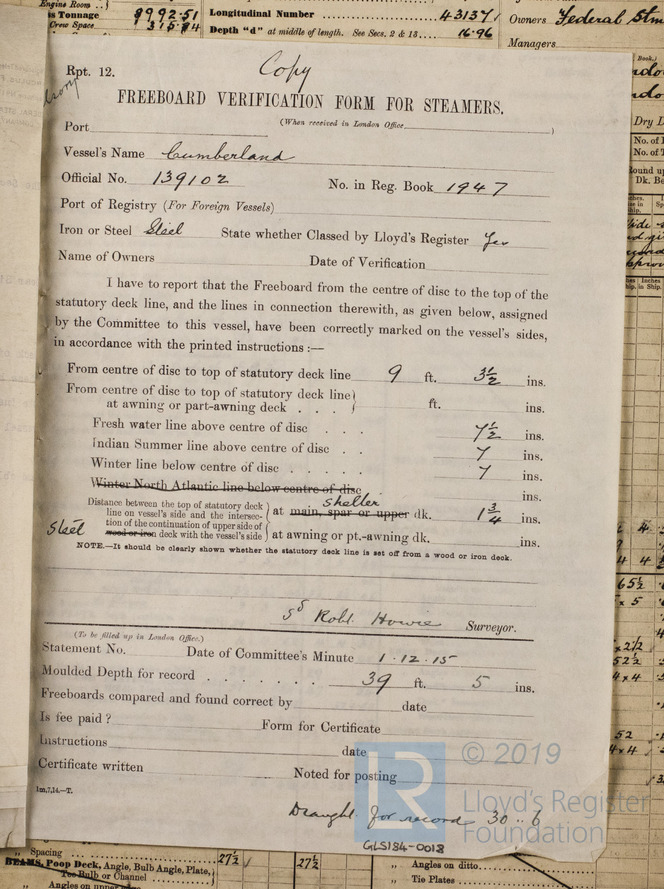 Engine Room
ss Tonnage 8992.51
Crew Space 315.84
Longitudinal Number 43137
Depth "d" at middle of length. See Secs. 2 & 13 16.96
Owners Federal Stm
Managers
Rpt. 12. Copy
FREEBOARD VERIFICATION FORM FOR STEAMERS.
Port (When received in London Office )
Vessel's Name Cumberland
Official No. 139102 No. in Reg. Book 1947
Port of Registry (For Foreign Vessels)
Iron or Steel Steel State whether Classed by Lloyd's Register Yes
Name of Owners Date of Verification
I have to report that the Freeboard from the centre of disc to the top of the
statutory deck line, and the lines in connection therewith, as given below, assigned
by the Committee to this vessel, have been correctly marked on the vessel's sides,
in accordance with the printed instructions :—
From centre of disc to top of statutory deck line 9 ft. 3½ ins.
From centre of disc to top of statutory deck line
at awning or part-awning deck . . . ft. ins.
Fresh water line above centre of disc . . . 7½ ins.
Indian Summer line above centre of disc . . 7 ins.
Winter line below centre of disc . . . . . 7 ins.
Winter North Atlantic line below centre of disc . ins.
Distance between the top of statutory deck
line on vessel's side and the intersec-
tion of the continuation of upper side of
Steel wood or iron deck with the vessel's side
shelter
at main, spar or upper dk. 1¾ ins.
at awning or pt.-awning dk. ins.
NOTE.—It should be clearly shown whether the statutory deck line is set off from a wood or iron deck.
sd Robt. Howie Surveyor.
(To be filled up in London Office.)
Statement No. Date of Committee's Minute 1.12.15
Moulded Depth for record . . . . . . . 39 ft. 5 ins.
Freeboards compared and found correct by date
Is fee paid ? Form for Certificate
Instructions date
Certificate written Noted for posting
1m,7,14.—T.
Draught for record 30..6
LR
© 2019
Lloyd's Register
Foundation
GLS184-0018
" Spacing 27½ 27½
BEAMS, Poop Deck, Angle, Bulb Angle, Plate,
Tee Bulb or Channel
" Angles on upper
" Angles on ditto
" Tie Plates